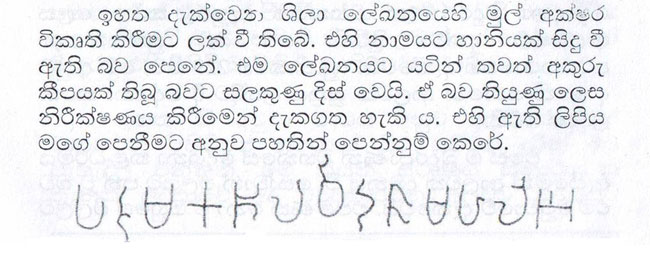 ඉහත දැක්වෙන ශිලා ලේඛනයෙහි මුල් අක්ෂර
විකෘති කිරීමට ලක් වී තිබේ. එහි නාමයට හානියක් සිදු වී
ඇති බව පෙනේ. එම ලේඛනයට යටින් තවත් අකුරු
කීපයක් තිබූ බවට සලකුණු දිස් වෙයි. ඒ බව තියුණු ලෙස
නිරීක්ෂණය කිරීමෙන් දැකගත හැකි ය. එහි ඇති ලිපිය
මගේ පෙනීමට අනුව පහතින් පෙන්නුම් කෙරේ.